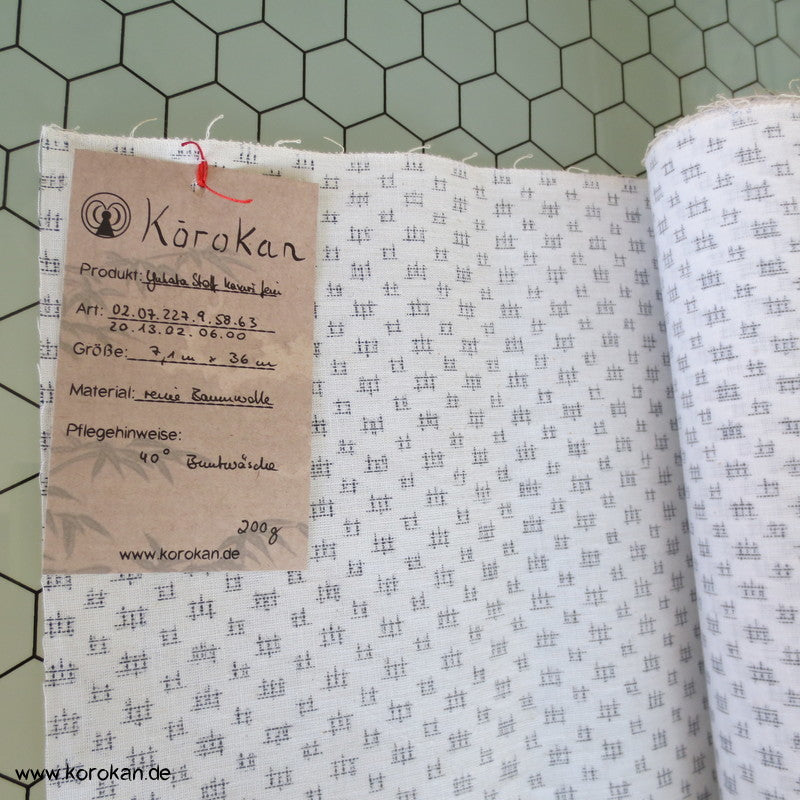 KōroKan
Produkt: Yukata Stoff
Art: 02.07.227.9.58.63
20.13.02.06.00
Größe: 7,1 m x 36 cm
Material: reine Baumwolle
Pflegehinweise:
40° Buntwäsche
200g
www.korokan.de
www.korokan.de